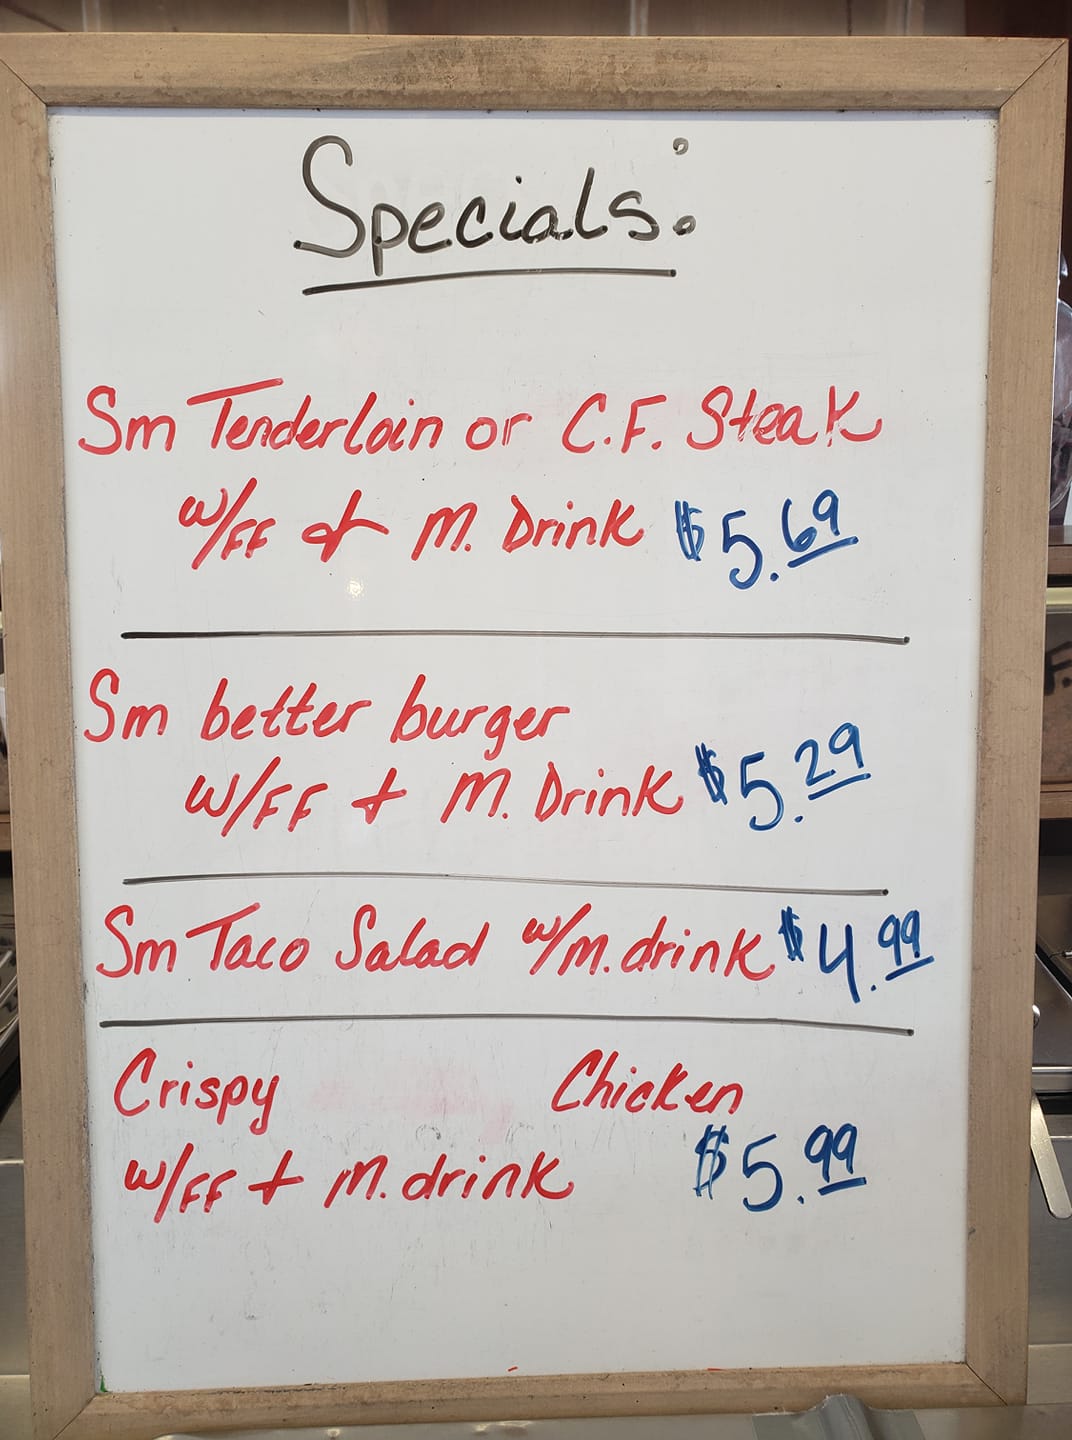 Specials:
Sm Tenderloin or C.F. Steak
w/FF & M. Drink $5.69
Sm better burger
w/FF + M. Drink $5.29
Sm Taco Salad w/m. drink $4.99
Crispy Chicken
w/FF + M. drink $5.99